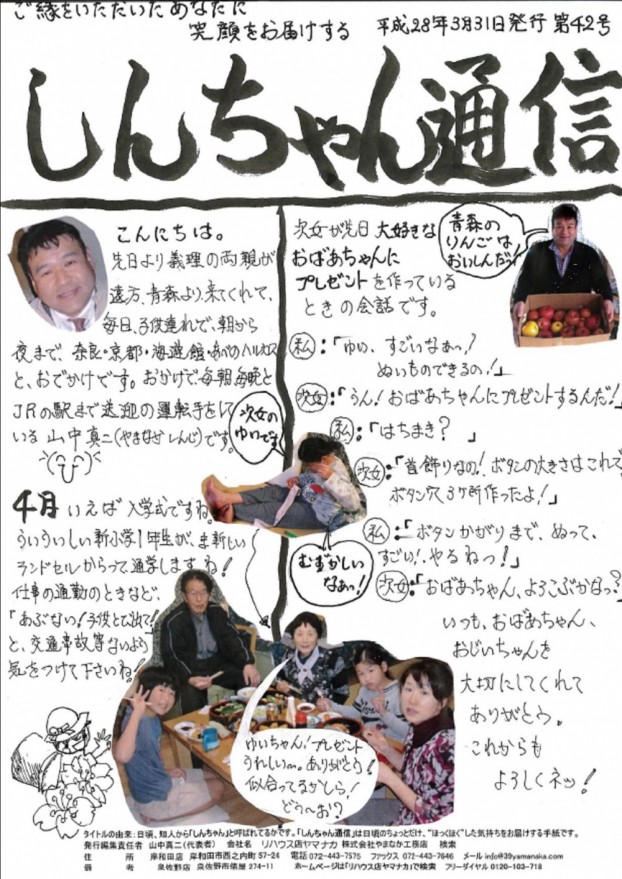 ご縁をいただいたあなたに
笑顔をお届けする
平成28年3月31日発行 第42号
しんちゃん通信
こんにちは。
先日より義理の両親が
遠方、青森より、来てくれて、
毎日、子供連れで、朝から
夜まで、奈良・京都・海遊館・あべのハルカス
と、おでかけです。おかげで、毎朝、毎晩と
JRの駅まで送迎の運転手をして
いる 山中真二(やまなか しんじ)です。
4月 いえば 入学式ですね。
ういういしい新小学1年生が、ま新しい
ランドセルからって通学しますね!
仕事の通勤のときなど、
「あぶない!子供とび出て!」
と、交通事故等ないよう
気をつけて下さいね!
次女が先日 大好きな
おばあちゃんに
プレゼントを作っている
ときの会話です。
青森の
りんごは
おいしんだ〜
私:「ゆい、すごいなぁっ!
ぬいものできるの!」
次女:「うん!おばあちゃんにプレゼントするんだ!」
私:「はちまき? 」
次女:「首飾りなの!ボタンの大きさはこれで
ボタン穴、3ヶ所作ったよ!」
私:「ボタンかがりまで、ぬって、
すごい!やるねっ!」
次女:「おばあっちゃん、よろこぶかなっ?
いつも、おばあちゃん、
おじいちゃんを
大切にしてくれて
ありがとう。
これからも
よろしくネッ!
次女の
ゆいです
むずかしい
なぁっ!
ゆいちゃん!プレゼント
うれしい〜。ありがとう!
似合ってるかしら!
どう〜お!?
タイトルの由来:日頃、知人から「しんちゃん」と呼ばれてるかです。「しんちゃん通信」は日頃のちょっとだけ、"ほっくほく"した気持ちをお届けする手紙です。
発行編集責任者 山中真二(代表者) 会社名 リハウス店ヤマナカ 株式会社やまなか工務店 検索
住 所 岸和田店 岸和田市西之内町57-24 電話 072-443-7575 ファックス 072-443-7646 メール info@39yamanaka.com
備 考 泉佐野店 泉佐野市俵屋274-11 ホームページは「リハウス店ヤマナカ」で検索 フリーダイヤル 0120-103-718